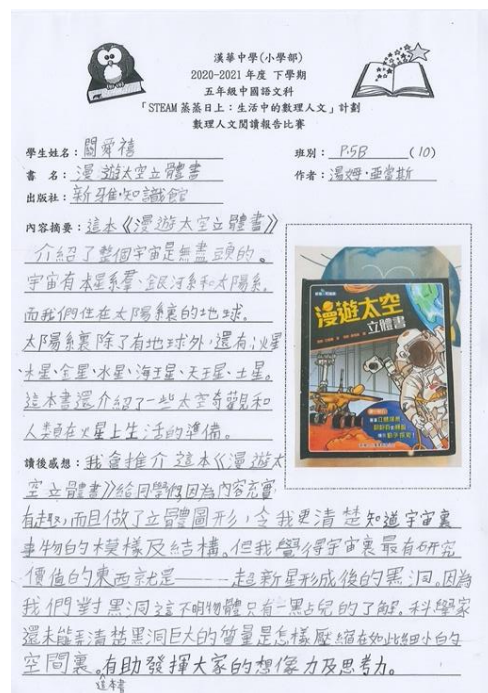 漢華中學(小學部)
2020-2021年度 下學期
五年級中國語文科
「STEAM蒸蒸日上：生活中的數理人文」計劃
數理人文閱讀報告比賽
學生姓名：關舜禧
班別：P.5B (10)
書 名：漫遊太空立體書
作者：湯姆·亞當斯
出版社：新雅·知識館
內容摘要：這本《漫遊太空立體書》
介紹了整個宇宙是無盡頭的。
宇宙有本星系羣、銀河系和太陽系。
而我們住在太陽系裏的地球。
太陽系裏除了有地球外，還有：火星
、木星、金星、水星、海王星、天王星、土星。
這本書還介紹了一些太空奇觀和
人類在火星上生活的準備。
漫遊太空
立體書
讀後感想：我會推介這本《漫遊太
空立體書》給同學們，因為內容充實
有趣，而且做了立體圖形，令我更清楚知道宇宙裏
事物的模樣及結構。但我覺得宇宙裏最有研究
價值的東西就是————超新星形成後的黑洞。因為
我們對黑洞這不明物體只有一點兒的了解。科學家
還未能弄清楚黑洞巨大的質量是怎樣壓縮在如此細小的
空間裏。這本書有助發揮大家的想像力及思考力。